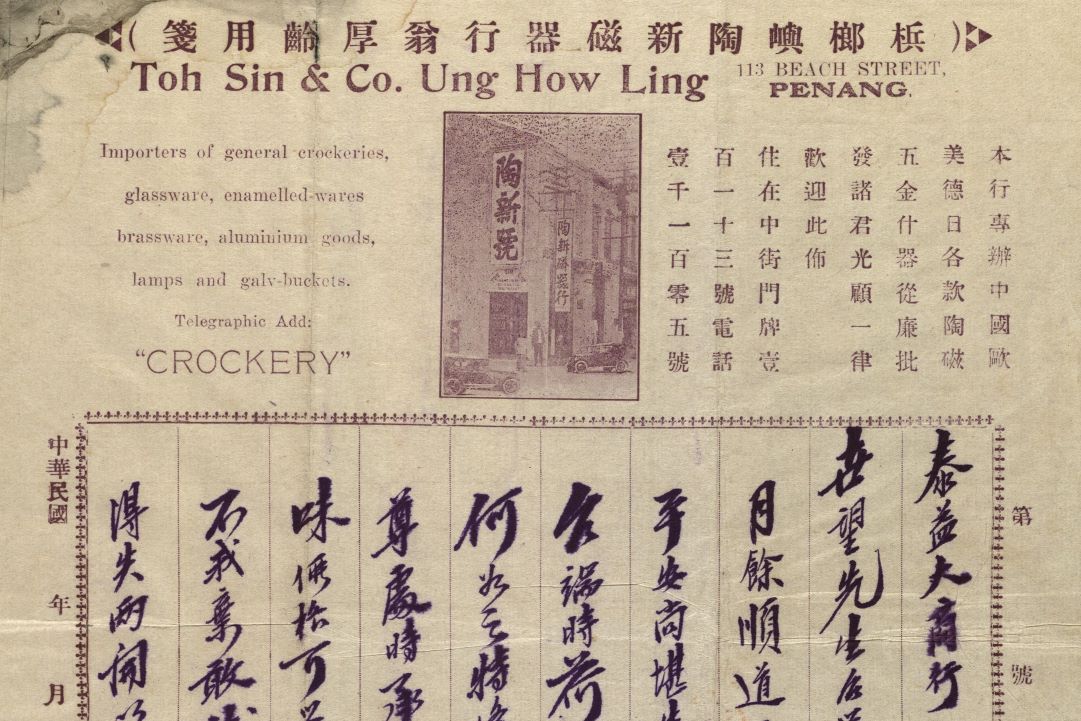 (梹榔嶼陶新磁器行翁厚齡用箋)
Toh Sin & Co. Ung How Ling
113 BEACH STREET,
PENANG.
Importers of general crockeries,
glassware, enamelled-wares
brassware, aluminium goods,
lamps and galv-buckets.
Telegraphic Add:
"CROCKERY"
陶新號
陶新磁器行
本行專辦中國歐
美德日各款陶磁
五金什器從廉批
發諸君光顧一律
歡迎此佈
住在中街門牌壹
百一十三號電話
壹千一百零五號
第 號
泰益大商行
世望先生
月餘順道
平安尚堪
台端時荷
何如之特
尊處時承
味 可
不我棄敢
得失兩間
中華民國 年 月